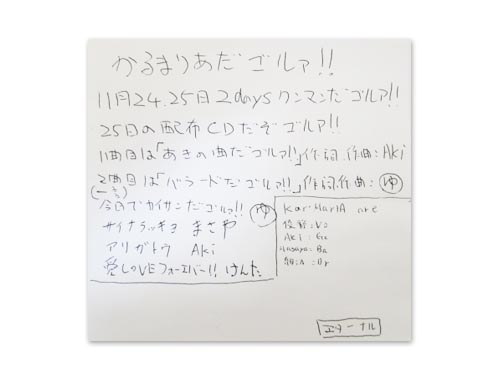 かるまりあだゴルァ!!
11月24.25日2daysワンマンだゴルァ!!
25日の配布CDだぞゴルァ!!
1曲目は「あきの曲だゴルァ!!」作詞.作曲:Aki
2曲目は「バラードだゴルァ!!」作詞.作曲:ゆ
今日でカイサンだゴルァ!! ゆ
サイナラッキョ まさや
アリガトウ Aki
愛しのVEフォーエバー!! けんた
KarMariA are
:Vo
Aki:Gu
Masaya:Ba
:Dr
エターナル